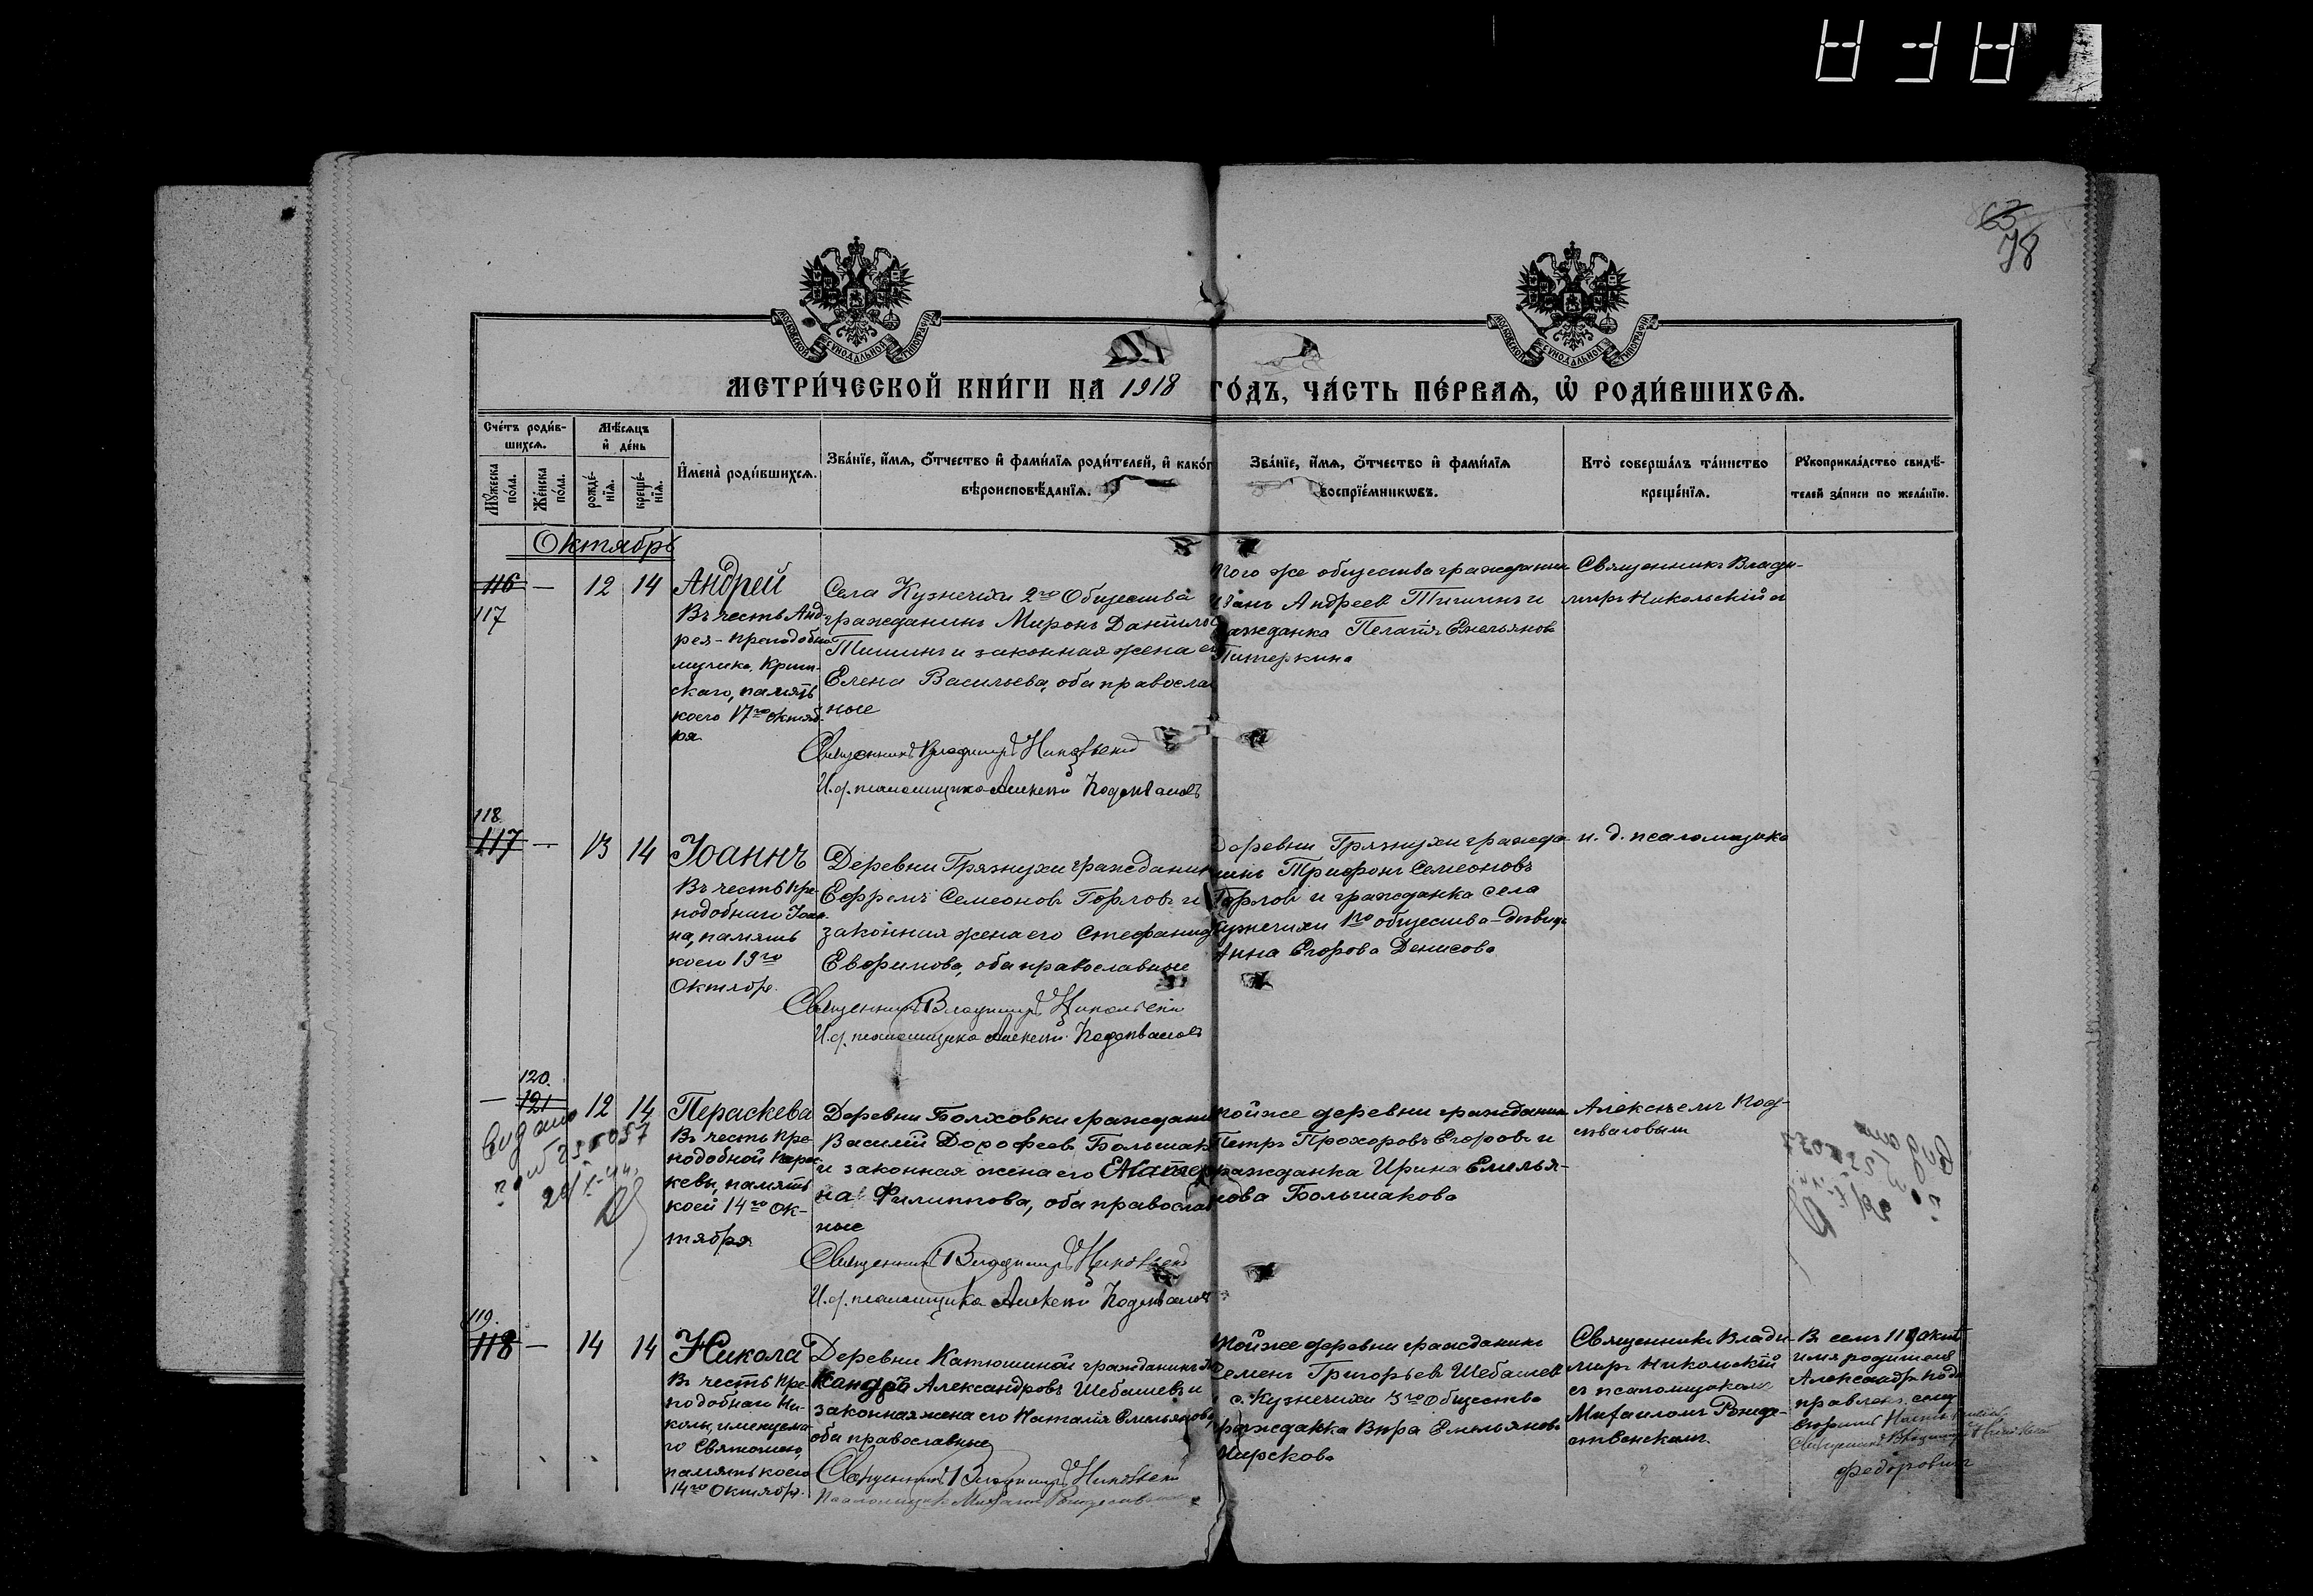 63
78
МОСКОВСКОЙ СѴНОДАЛЬНОЙ ТИПОГРАФІИ
МОСКОВСКОЙ СѴНОДАЛЬНОЙ ТИПОГРАФІИ
МЕТРИ́ЧЕСКОЙ КНИ́ГИ НА 1918 ГО́ДЪ, ЧА́СТЬ ПЕ́РВАѦ, Ѡ҆ РОДИ́ВШИХСѦ.
Сче́тъ роди́в-
шихсѧ.
Мꙋ́жеска по́ла.
Же́нска по́ла.
Мѣ́сѧцъ
и҆ де́нь
рожде́-
нїѧ.
креще́-
нїѧ.
И҆мена̀ роди́вшихсѧ.
Зва́нїе, и҆́мѧ, ѻ҆́тчество и҆ фами́лїѧ роди́телей, и҆ како́г
вѣроисповѣ́данїѧ.
Зва́нїе, и҆́мѧ, ѻ҆́тчество и҆ фами́лїѧ
воспрїе́мникѡвъ.
Кто̀ соверша́лъ та́инство
креще́нїѧ.
Рꙋкоприкла́дство свидѣ́-
телей за́писи по жела́нїю.
Октябрь
116 — 12 14 Андрей
117
Въ честь Анд-
рея - преподобно-
мученика Крит-
скаго, память
коего 17го октяб-
ря
Села Кузнечихи 2го Общества
гражданинъ Миронъ Данилов
Тишинъ и законная жена ег
Елена Васильева, оба православ
ные
Священникъ Владимиръ Никольскій
И.д. псаломщика Алексѣй Подсѣваловъ
того же общества гражданин
Иванъ Андреевъ Тишинъ и
гражданка Пелагія Емельянова
Питеркина
Священникъ Влади-
миръ Никольскій и
118
117 — 13 14 Іоаннъ
Въ честь пре-
подобнаго Іоан-
на, память
коего 19го
Октябр.
Деревни Грязнухи гражданин
Ефремъ Семеоновъ Горловъ и
законная жена его Стефанид
Евфимова, оба православные
Священникъ Владимиръ Никольскій
И.д. псаломщика Алексѣй Подсѣваловъ
Деревни Грязнухи гражда-
нинъ Трифонъ Семеоновъ
Горловъ и гражданка села
Кузнечихи 1го общества - дѣвица
Анна Егорова Денисова
и. д. псаломщика
120.
— 121 12 14 Параскева
Выдано
24/I-41.
Въ честь пре-
подобной Парас-
кевы, память
коей 14го ок-
тября
Деревни Болховки граждани
Василій Дорофеевъ Большак
и законная жена его Екатер
на Филиппова, оба православ
ные
Священникъ Владимиръ Никольскій
И.д. псаломщика Алексѣй Подсѣваловъ
той же деревни гражданин
Петръ Прохоровъ Егоровъ и
гражданка Ирина Емелья-
нова Большакова
Алексѣемъ Под-
сѣваловымъ
119.
118 — 14 14 Никола
Въ честь пре-
подобнаго Ни-
колы, именуема-
го Святошею,
память коего
14го Октябр.
Деревни Катюшиной гражданинъ
Александръ Александровъ Шебашевъ и
законная жена его Наталія Емельянова,
оба православные
Священникъ Владимиръ Никольскій
Псаломщикъ Михаилъ Рождественскій
той же деревни гражданинъ
Семенъ Григорьевъ Шебашев
с. Кузнечихи 3го Общества
гражданка Вѣра Емельянова
Ширскова
Священникъ Влади-
миръ Никольскій
съ псаломщикомъ
Михаиломъ Рожде-
ственскимъ
Въ семъ 118 актѣ
имя родителя
Александръ под-
Священникъ Владимиръ Никольскій